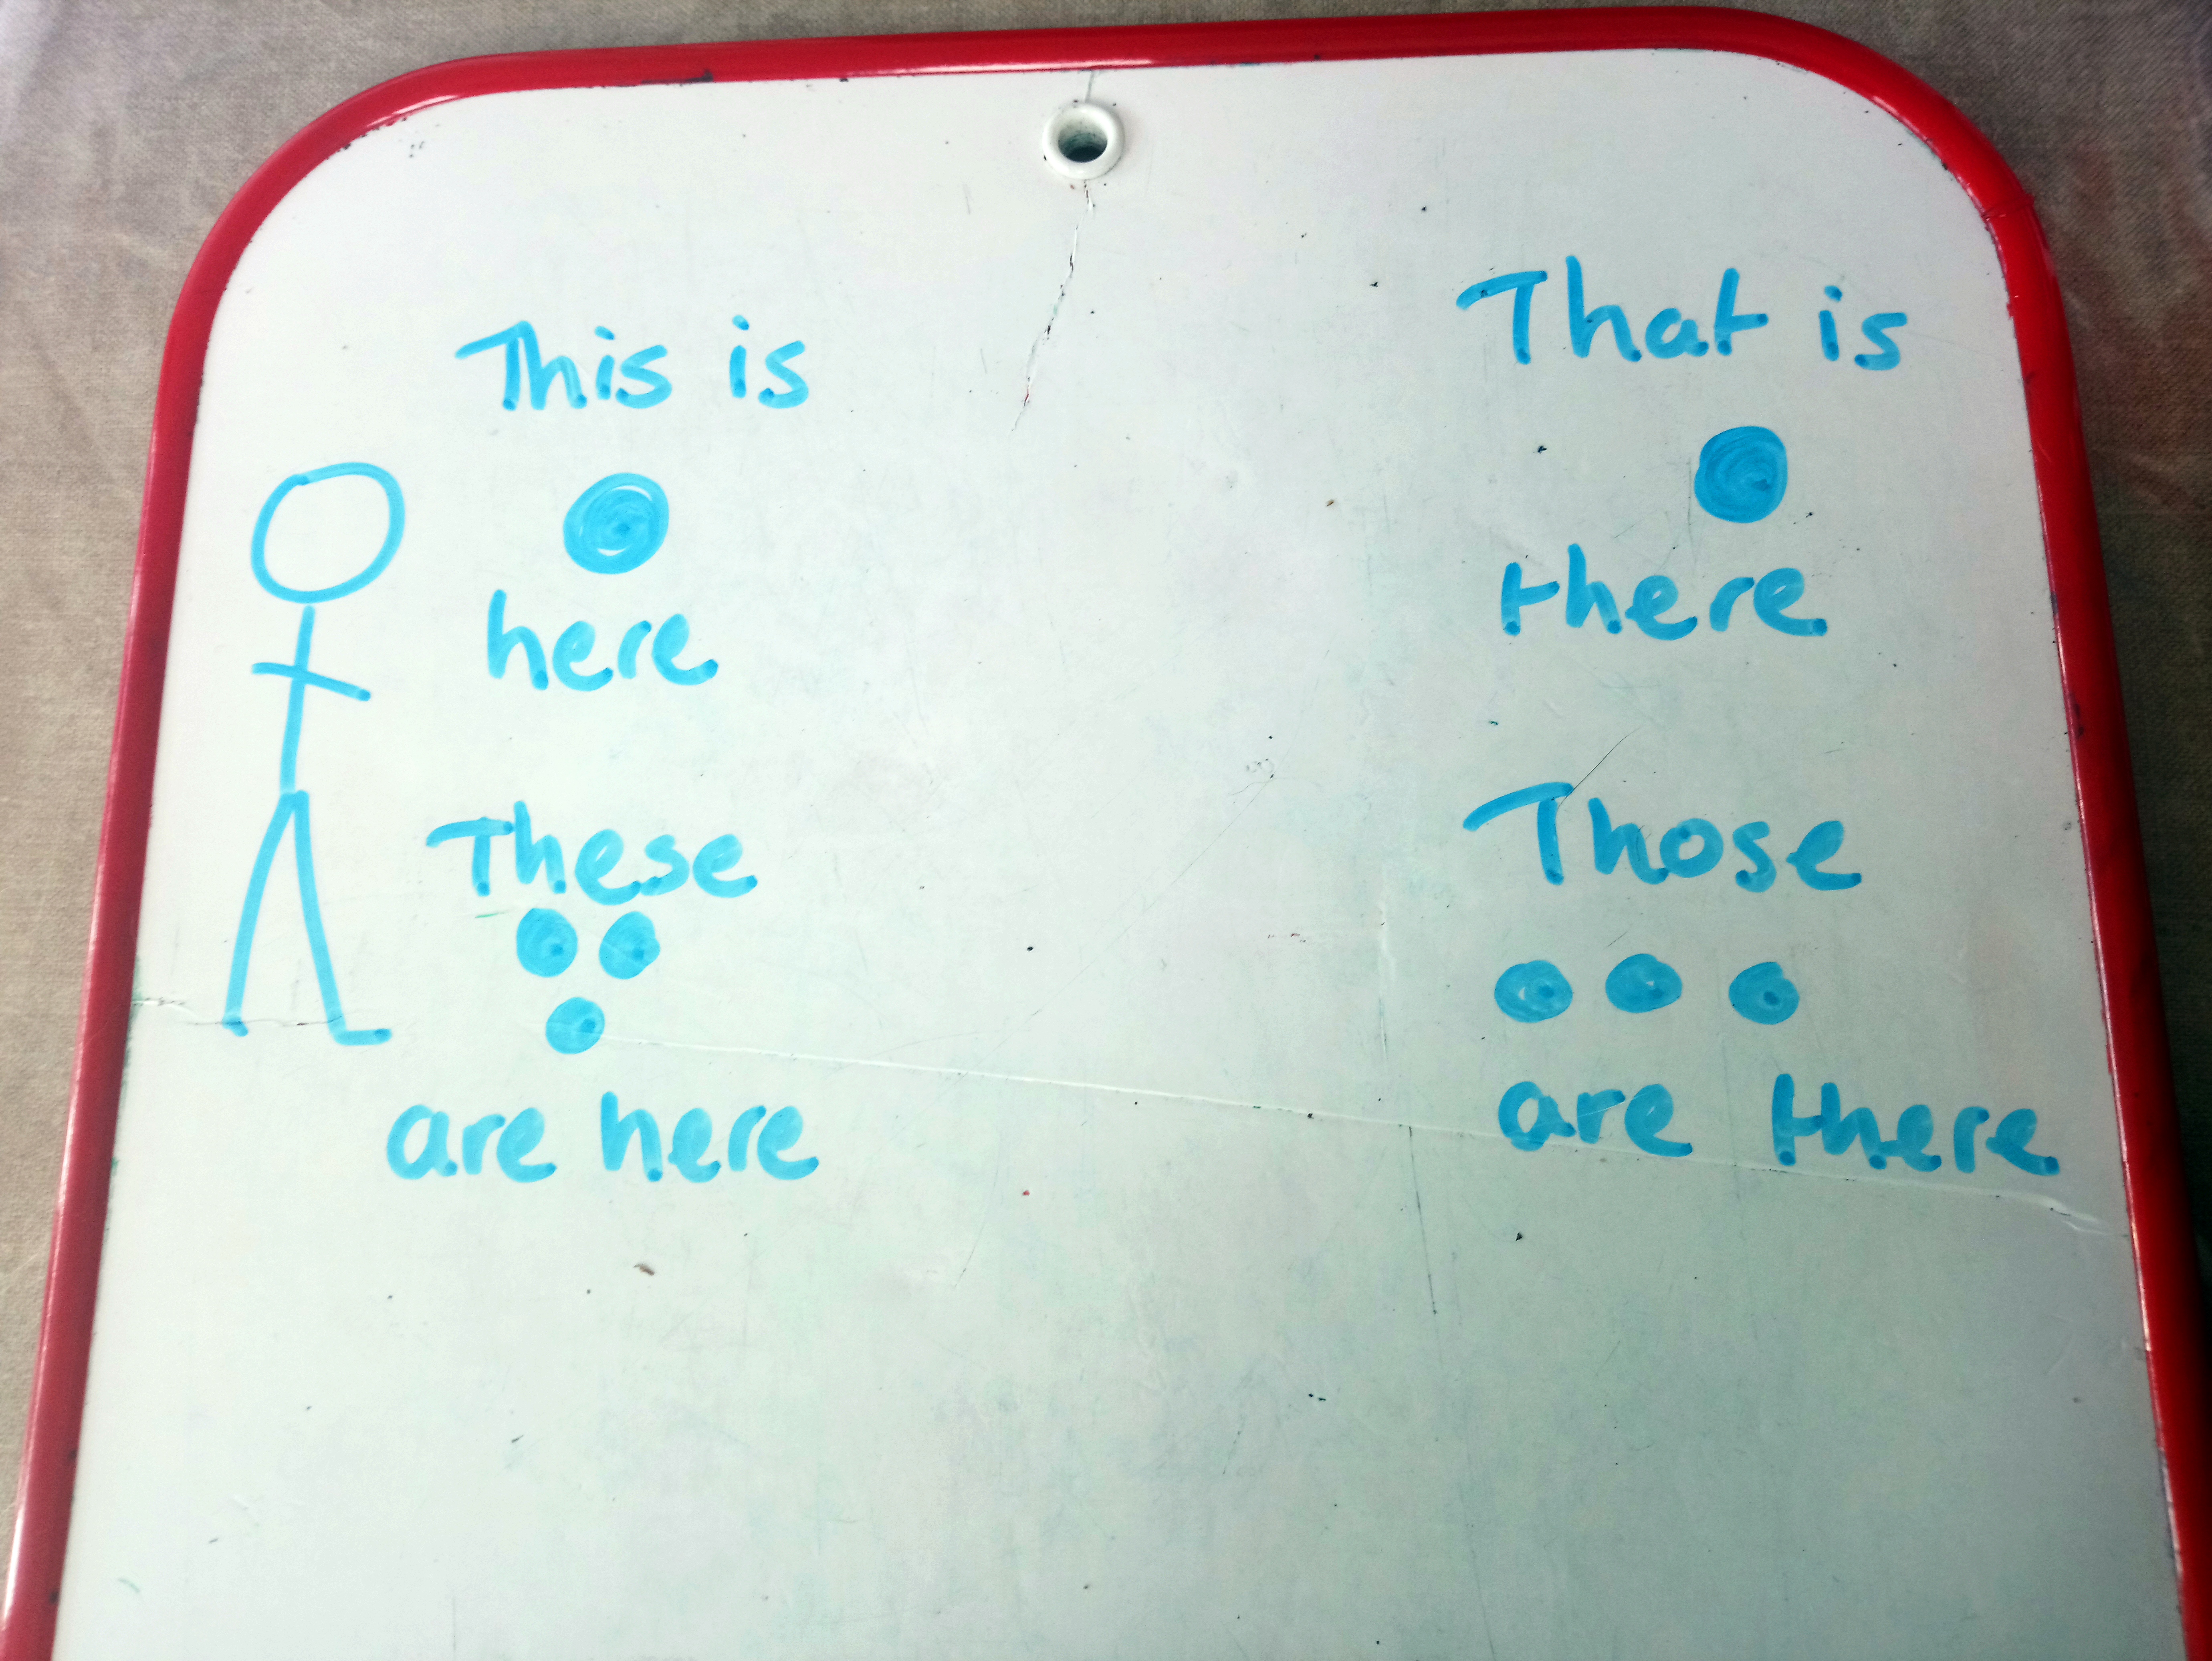 This is
here
These
are here
That is
there
Those
are there